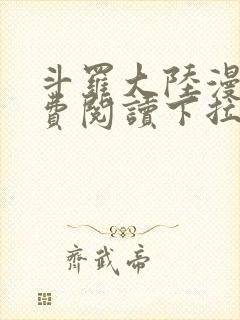 斗羅大陸漫
費閱讀下拉
齊武帝